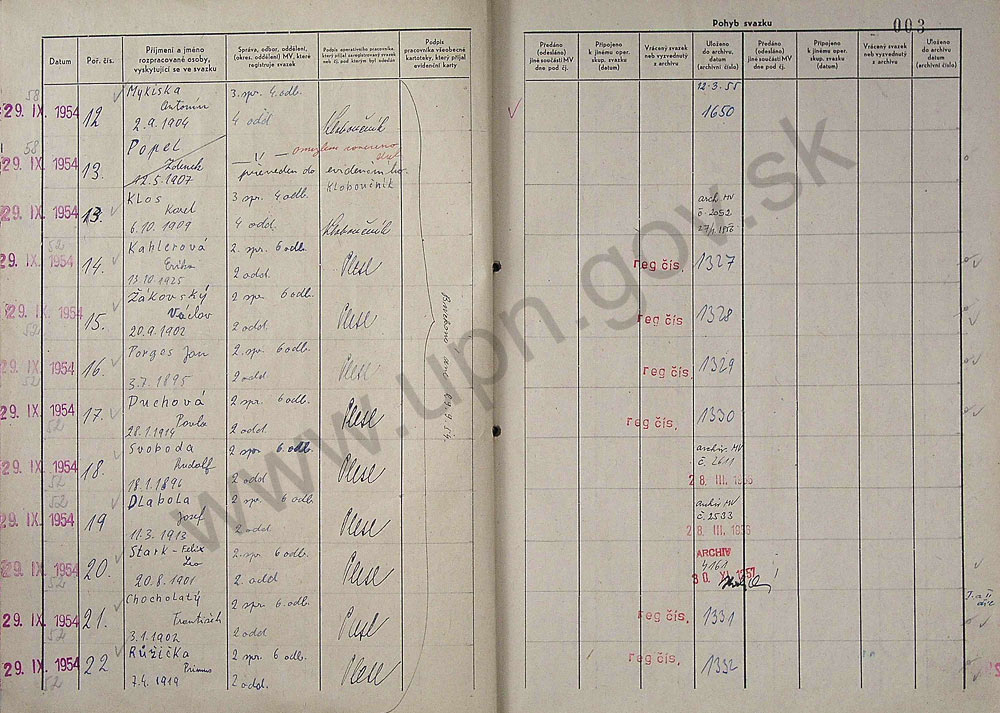 Pohyb svazku
003
Datum
Poř. čís.
Příjmení a jméno
rozpracované osoby,
vyskytující se ve svazku
Správa, odbor, oddělení,
(okres. oddělení) MV, které
registruje svazek
Podpis operativního pracovníka,
který přijal zaregistrovaný svazek
Podpis
pracovníka všeobecné
kartoteky, který přijal
evidenční karty
Předáno
(odesláno)
jiné součásti MV
dne pod čj.
Připojeno
k jinému oper.
skup. svazku
(datum)
Vrácený svazek
neb vyzvednutý
z archivu
Uloženo
do archivu,
datum
(archivní číslo)
Předáno
(odesláno)
jiné součásti MV
dne pod čj.
Připojeno
k jinému oper.
skup. svazku
(datum)
Vrácený svazek
neb vyzvednutý
z archivu
Uloženo
do archivu
datum
(archivní číslo)
58
29. IX. 1954
12
Mykiska
Antonín
2.9.1904
3. spr. 4. odb.
4 odd
Kloboučník
12-3-55
1650
58
29. IX. 1954
13.
Popel
Zdenek
12.5.1907
omylem
převeden do evidenčního
Kloboučník
29. IX. 1954
13.
Klos
Karel
6.10.1909
3 spr. 4 odb.
4 odd.
Kloboučník
arch. MV
č. 2052
52
29. IX. 1954
14.
Kahlerová
Erika
13.10.1925
2. spr. 6 odb.
2 odd.
reg čís.
1327
29. IX. 1954
15.
Žákovský
Václav
20.9.1902
2 spr. 6 odb.
2 odd.
reg čís
1328
52
29. IX. 1954
16.
Porges Jan
3.7.1895
2. spr. 6 odb.
2 odd
reg čís.
1329
52
29. IX. 1954
17.
Duchová
Pavla
28.1.1914
2 spr. 6 odb.
2 odd.
reg čís.
1330
52
29. IX. 1954
18.
Svoboda
Rudolf
18.1.1896
2 spr 6. odb.
2 odd
archiv. MV
č. 2611
28. III. 1956
52
29. IX. 1954
19
Dlabola
Josef
11.3.1913
2 spr 6 odb.
2 odd
archiv MV
č. 2533
28. III. 1956
52
29. IX. 1954
20.
Stark - Felix
Leo
20.8.1901
2. spr. 6 odb.
2. odd
ARCHIV
4161
30. XI. 1957
52
29. IX. 1954
21.
Chocholatý
František
3.1.1902
2 spr. 6 odb.
2 odd
reg čís.
1331
I. a II
díl
52
29. IX. 1954
22
Růžička
Primus
7.4.1919
2 spr 6 odb.
2 odd.
reg čís.
1332
52
www.upn.gov.sk